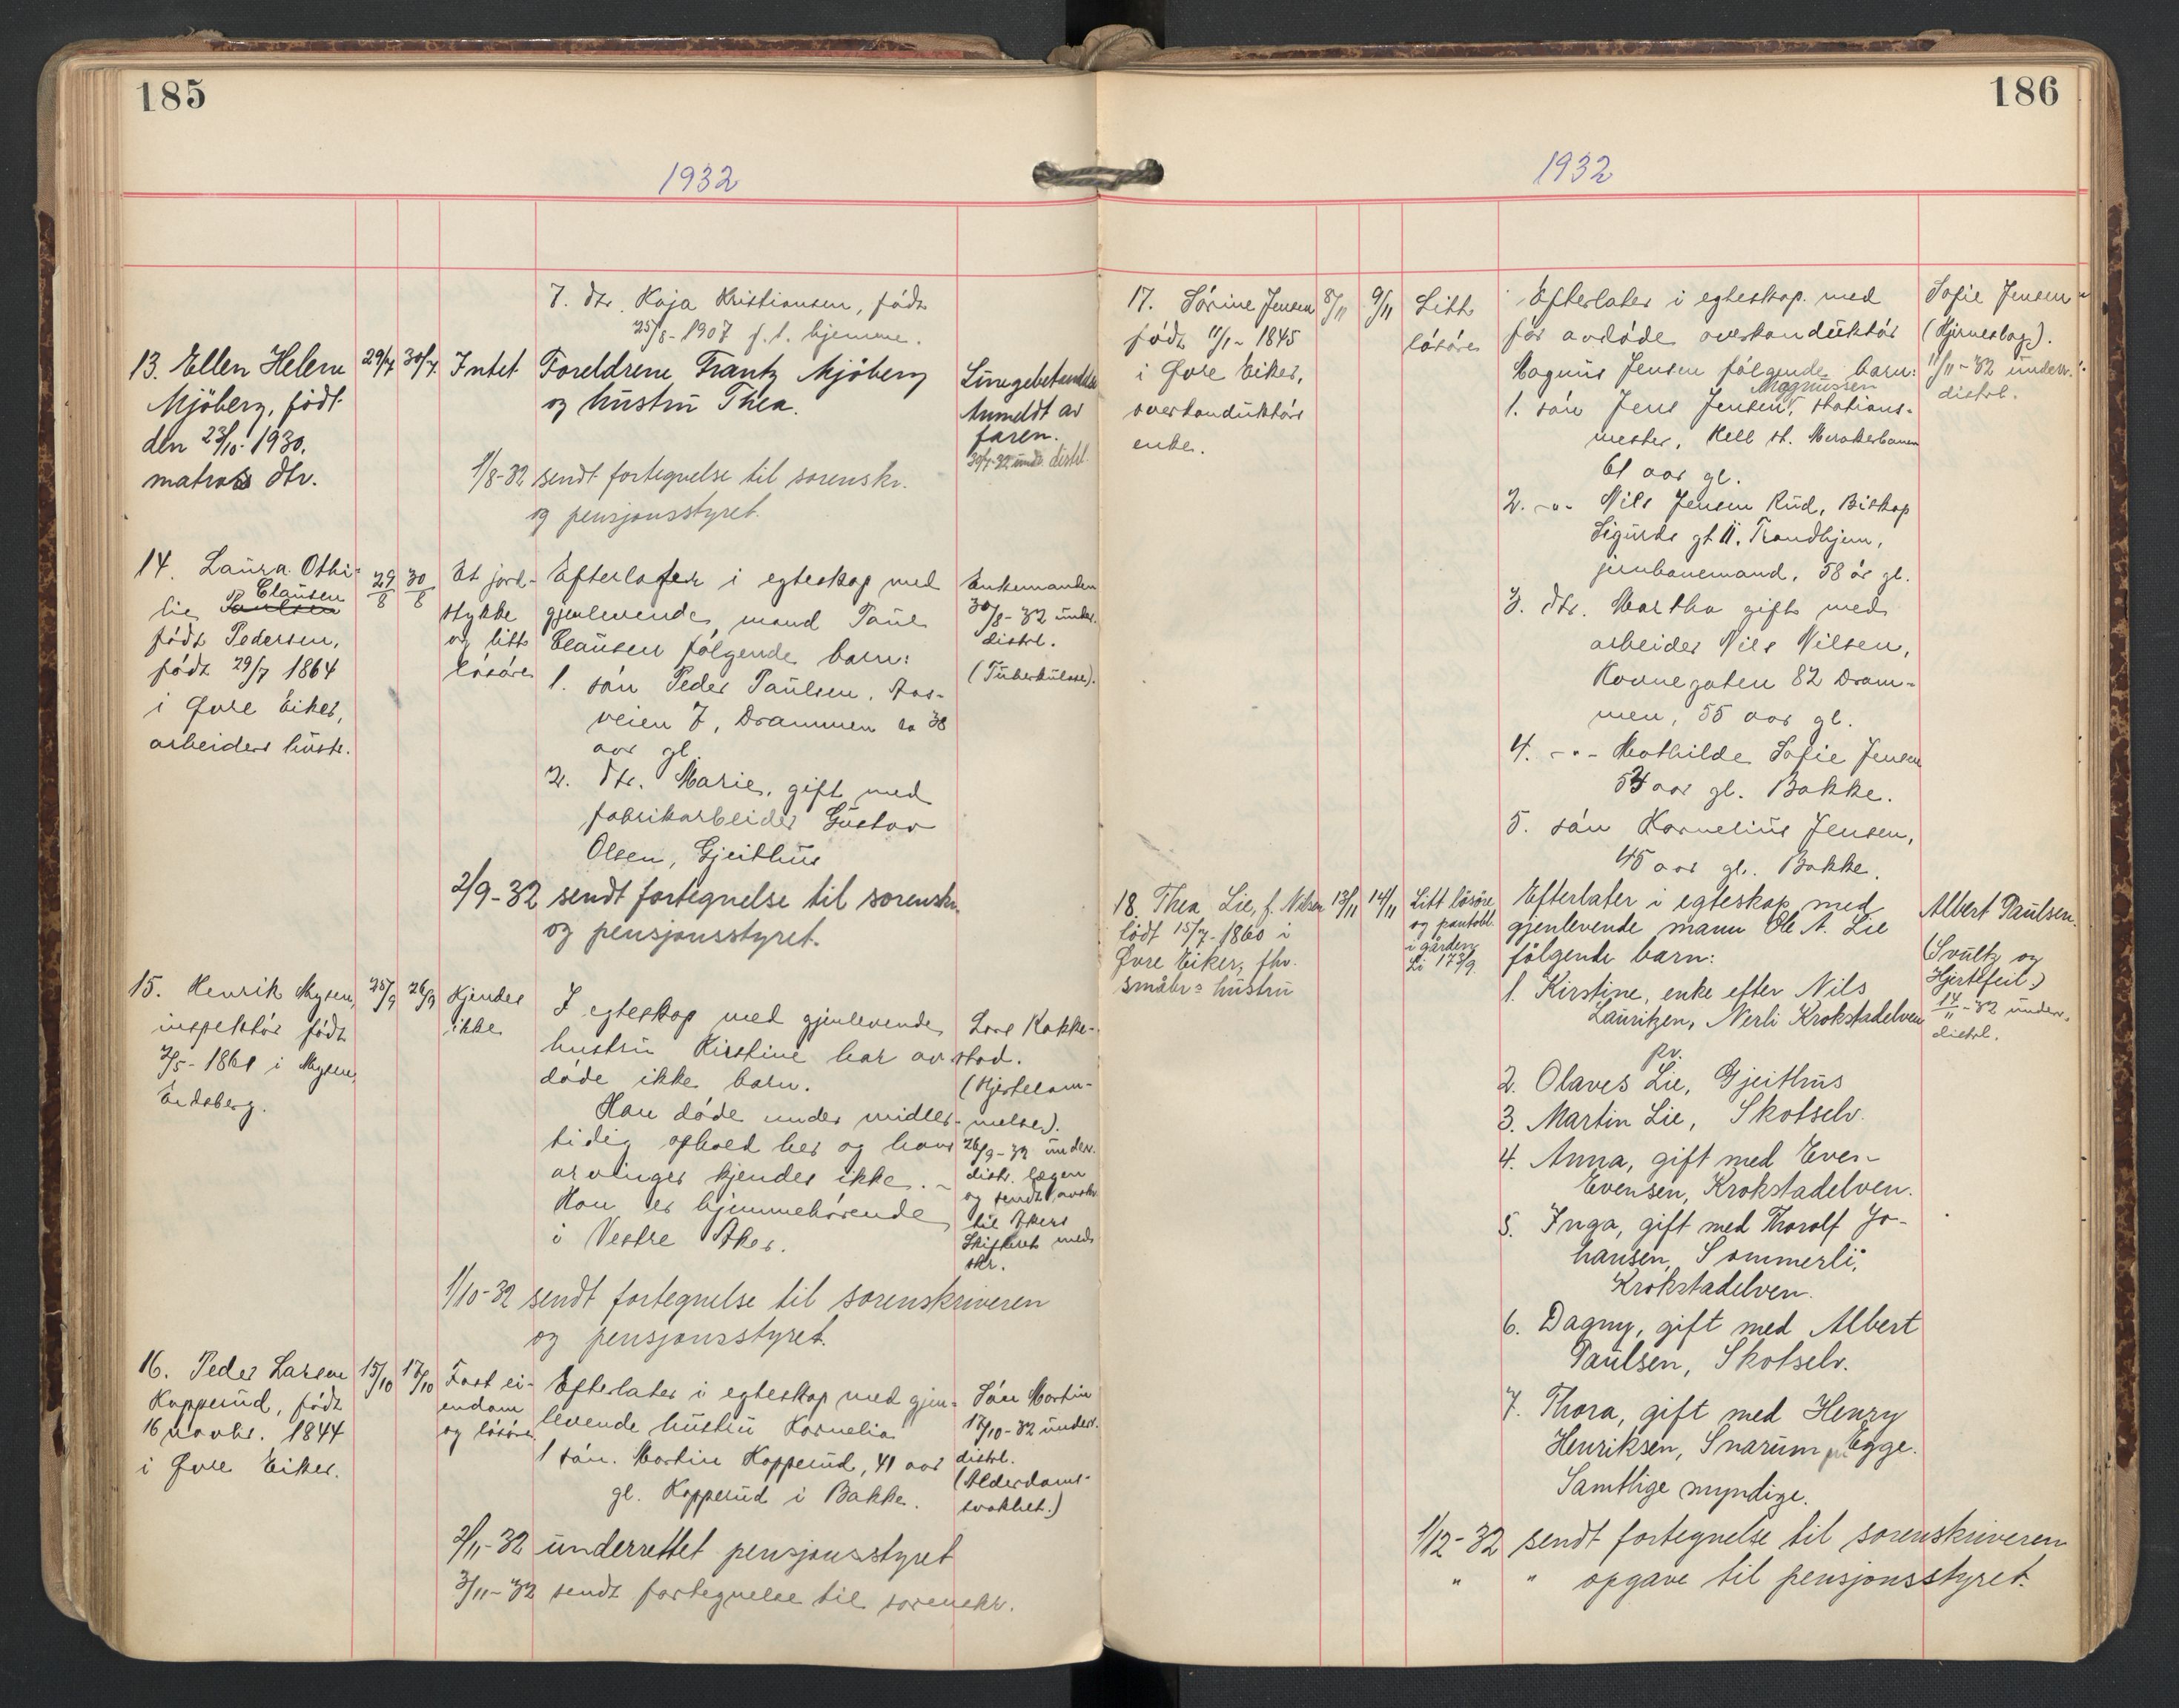 185
1932
7. dtr. Kaja Kristiansen, født
25/8-1907 f. t. hjemme.
13. Ellen Helene
Mjöberg, født
den 23/10-1930.
matros dtr.
29/7
30/7
Intet
Foreldrene Frantz Mjöberg
og hustru Thea.
Lungebetændelse
Anmeldt av
faren.
30/7-32 undr. distrl.
1/8-32 sendt fortegnelse til sorenskr.
og pensjonsstyret.
14. Laura Othi-
Clausen
lie Paulsen
født Pedersen,
født 29/7 1864
i Øvre Eiker,
arbeiders hustr.
29/8
30/8
Et jord-
stykke
og litt
løsøre
Efterlater i egteskap med
gjenlevende mand Paul
Clausen følgende barn:
1. søn Peder Paulsen, Aas-
veien 7, Drammen ca 38
aar gl.
2. dtr. Marie, gift med
fabrikarbeider Gustav
Olsen, Gjeithus
Enkemanden
30/8-32 under.
distrl.
(Tuberkulose).
2/9-32 sendt fortegnelse til sorenskr.
og pensjonsstyret.
15. Henrik Mysen,
inspektør født
2/5-1861 i Mysen,
Eidsberg.
25/9
26/9
Kjendes
ikke
I egteskap med gjenlevende
hustru Kirstine har av-
døde ikke barn.
Han døde under midler-
tidig ophold her og hans
arvinger kjendes ikke.
Han er hjemmehørende
i Vestre Aker.
Lars Kokke-
stad.
(Hjertelam-
melse).
26/9-32 underr.
distr. lægen
og sendt avskr.
til Akers
Skifteret med
skr.
1/10-32 sendt fortegnelse til sorenskriveren
og pensjonsstyret.
16. Peder Larsen
Kopperud, født
16 novbr. 1844
i Øvre Eiker.
15/10
17/10
Fast ei-
endom
og løsøre.
Efterlater i egteskap med gjen-
levende hustru Kornelia
1 søn. Martin Kopperud, 41 aar
gl. Kopperud i Bakke.
Søn Martin
17/10-32 underr.
distrl.
(Alderdoms-
svakhet.)
2/11-32 underrettet pensjonsstyret
3/11-32 sendt fortegnelse til sorenskr.
186
1932
17. Sørine Jensen
født 11/1-1845
i Øvre Eiker,
overkonduktørs
enke.
8/11
9/11
Litt
løsøre
Efterlater i egteskap med
før avdøde overkonduktør
Magnus Jensen følgende barn:
Magnussen
1. søn Jens Jensen, stations-
mester, Hell st. Merakerbanen
61 aar gl.
2. -"- Nils Jensen Rud, Biskop
Sigurds gt 11. Trondhjem,
jernbanemand, 58 år gl.
3. dtr. Martha gift med
arbeider Nils Nilsen,
Konnegaten 82 Dram-
men, 55 aar gl.
4. -"- Mathilde Sofie Jensen
54 aar gl. Bakke.
5. søn Kornelius Jensen,
45 aar gl. Bakke.
Sofie Jensen
(Hjerneslag).
11/11-32 underr.
distrl.
18. Thea Lie, f. Nilsen
født 15/7-1860 i
Øvre Eiker, fhv.
småbr= hustru
13/11
14/11
Litt løsøre
og pantobl.
i gården
Li 173/9.
Efterlater i egteskap med
gjenlevende mann Ole A. Lie
følgende barn:
1. Kirstine, enke efter Nils
Lauritzen, Nerli Krokstadelven
pr.
2. Olaves Lie, Gjeithus
3. Martin Lie, Skotselv.
4. Anna, gift med Even
Evensen, Krokstadelven.
5. Inga, gift med Thorolf Jo-
hansen, Sommerli,
Krokstadelven.
6. Dagny, gift med Albert
Paulsen, Skotselv.
7. Thora, gift med Henry
Henriksen, Snarum pr. Egge.
Samtlige myndige.
Albert Paulsen.
(Svultz og
Hjertefeil.)
14/11-32 underr.
distrl.
1/12-32 sendt fortegnelse til sorenskriveren
" " opgave til pensjonsstyret.